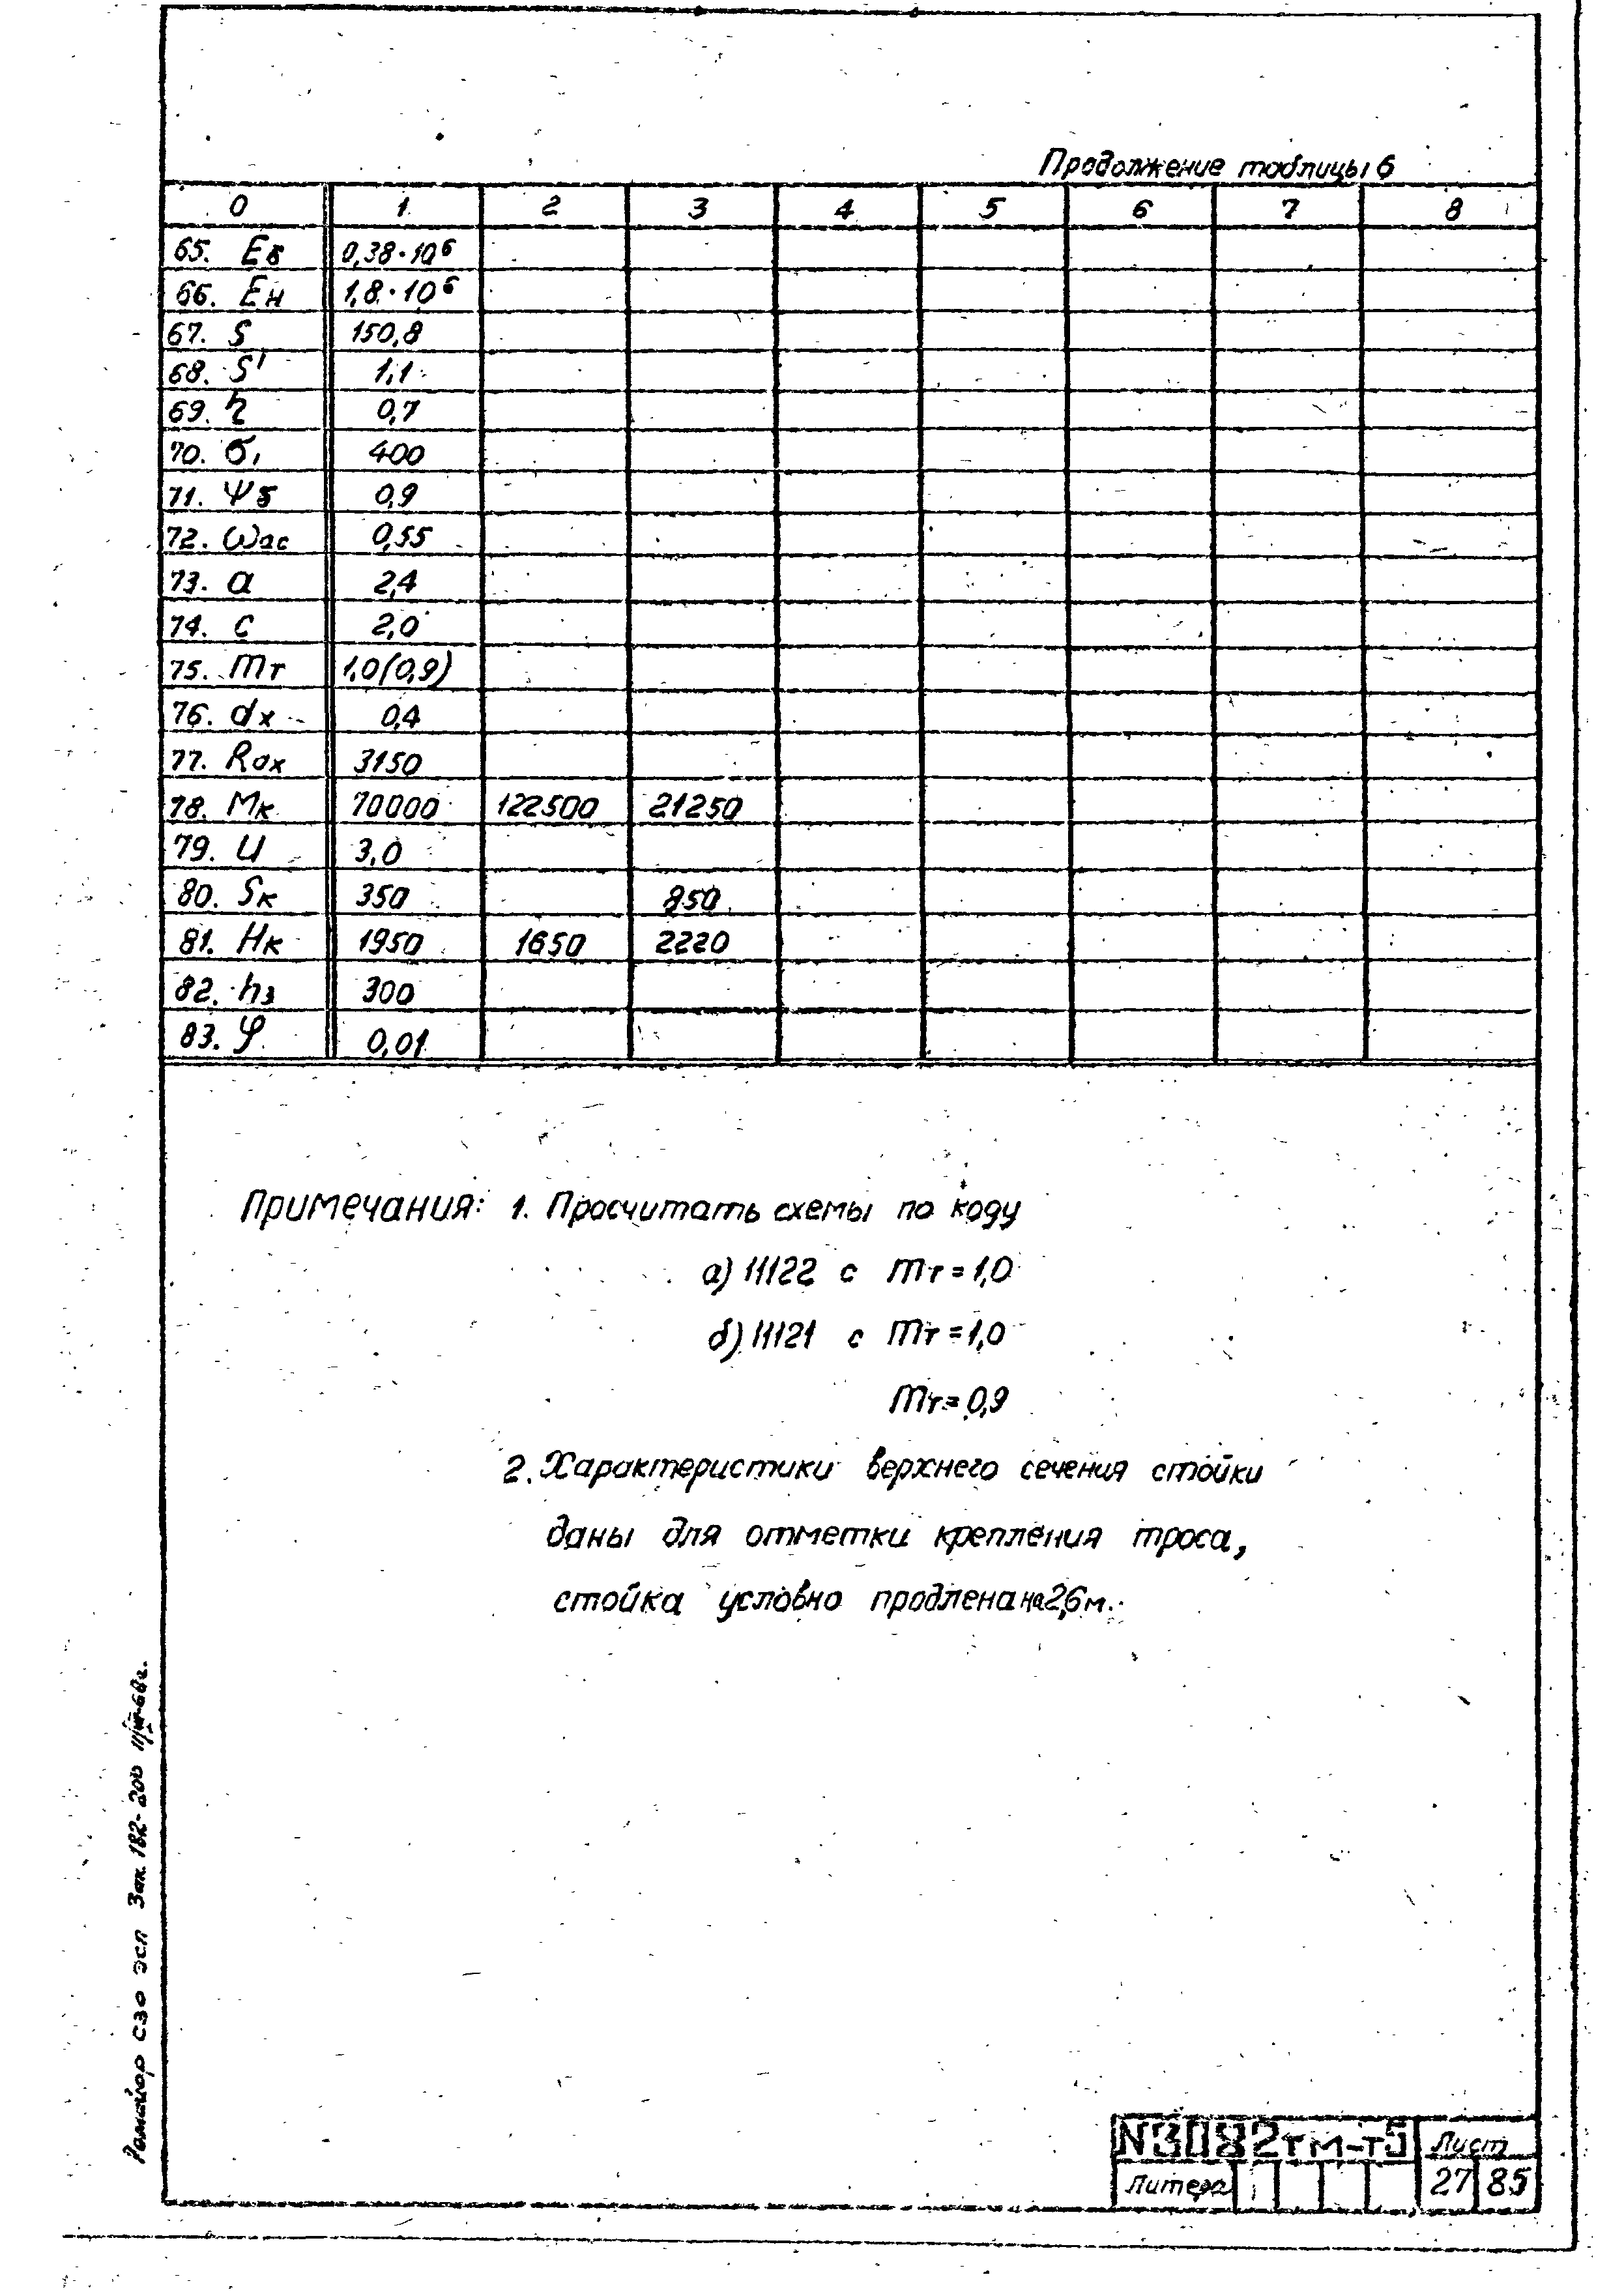 Продолжение таблицы 6
0 1 2 3 4 5 6 7 8
65. Eб 0,38·10⁶
66. Eн 1,8·10⁶
67. S 150,8
68. S' 1,1
69. η 0,7
70. σ₁ 400
71. Ψб 0,9
72. ωас 0,55
73. а 2,4
74. с 2,0
75. mт 1,0(0,9)
76. dх 0,4
77. Rах 3150
78. Mк 70000 122500 21250
79. U 3,0
80. Sк 350 850
81. Hк 1950 1650 2220
82. hз 300
83. φ 0,01
Примечания: 1. Просчитать схемы по коду
а) 11122 с mт=1,0
б) 11121 с mт=1,0
mт=0,9
2. Характеристики верхнего сечения стойки
даны для отметки крепления троса,
стойка условно продлена на 2,6 м.
Ромайор СЗО ЭСП Зак. 182-200
N3082тм-т5 Лист
Литера 27 85